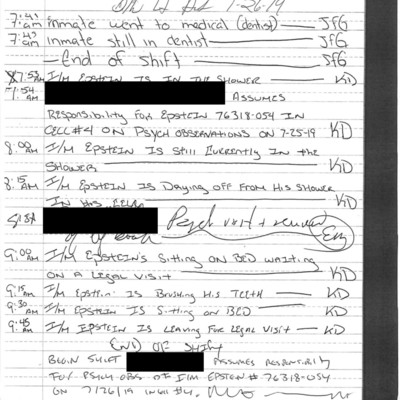 7-26-19
7:41 am inmate went to medical (dentist) JFG
7:43 am inmate still in dentist JFG
End of shift JFG
7:52 I/M EPSTEIN IS IN THE SHOWER KD
7:54 AM ASSUMES
RESPONSIBILITY FOR EPSTEIN 76318-054 IN
CELL #4 ON PSYCH OBSERVATIONS ON 7-25-19 KD
8:00 AM I/M EPSTEIN IS STILL CURRENTLY IN THE
SHOWER KD
8:15 AM I/M EPSTEIN IS DRYING OFF FROM HIS SHOWER
IN HIS CELL KD
Psych visit + review
9:00 AM I/M EPSTEIN'S SITTING ON BED WAITING
ON A LEGAL VISIT KD
9:15 AM I/M EPSTEIN IS BRUSHING HIS TEETH KD
9:30 AM I/M EPSTEIN IS SITTING ON BED KD
9:45 AM I/M EPSTEIN IS LEAVING FOR LEGAL VISIT KD
END OF SHIFT
BEGIN SHIFT ASSUMES RESPONSIBILITY
FOR PSYCH OBS OF I/M EPSTEIN # 76318-054
ON 7/26/19 IN #4.